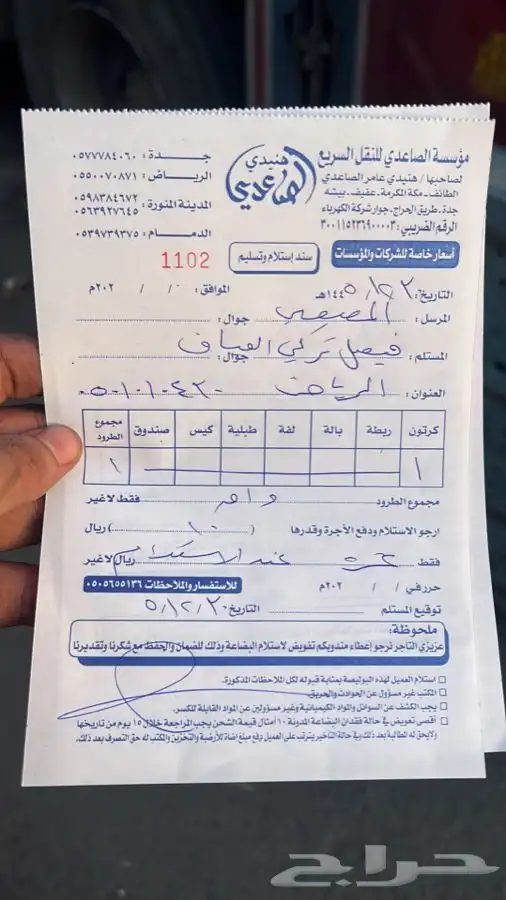 مؤسسة الصاعدي للنقل السريع
لصاحبها / هنيدي عامر الصاعدي
الطائف - مكة المكرمة - عفيف - بيشه
جدة - طريق الحراج - جوار شركة الكهرباء
الرقم الضريبي: ٣٠٠١١٥٢٣٦٩٠٠٠٠٣
هنيدي
الصاعدي
جــدة: ٠٥٧٧٧٨٤٠٦٠
الرياض: ٠٥٥٠٠٧٠٨٧١
المدينة المنورة: ٠٥٩٨٣٨٤٦٧٢
٠٥٦٣٩٢٧٦٤٥
الدمام: ٠٥٣٩٧٣٩٣٧٥
أسعار خاصة للشركات والمؤسسات
سند إستلام وتسليم
1102
التاريخ: ٣ / ١٢ / ١٤٤٥هـ الموافق: / / ٢٠٢م
المرسل: جوال:
المستلم: فيصل تركي جوال:
العنوان: الرياض ٠٥٠١٠١٠٤٢٠
كرتون ربطة بالة لفة طبلية كيس صندوق مجموع الطرود
١ ١
مجموع الطرود واحد فقط لاغير
ارجو الاستلام ودفع الأجرة وقدرها (١٠) ريال
فقط عشرة عند الاستلام ريال لاغير
حرر في / / ٢٠٢م
للاستفسار والملاحظات ٠٥٠٥٦٥٥١٣٦
توقيع المستلم التاريخ:
ملحوظة:
عزيزي التاجر نرجو إعطاء مندوبكم تفويض لاستلام البضاعة وذلك للضمان والحفظ مع شكرنا وتقديرنا
استلام العميل لهذه البوليصة بمثابة قبوله لكل الملاحظات المذكورة.
المكتب غير مسؤول عن الحوادث والحريق.
يجب الكشف عن السوائل والمواد الكيميائية وغير مسؤولين عن المواد القابلة للكسر.
أقصى تعويض في حالة فقدان البضاعة المدونة ١٠ أمثال قيمة الشحن يجب المراجعة خلال ١٥ يوم من تاريخها
ولايحق له المطالبة بعد ذلك وفي حالة التأخير يترتب على العميل دفع مبلغ اضافة للأرضية والتخزين والمكتب له حق التصرف بعد ذلك.
حراج